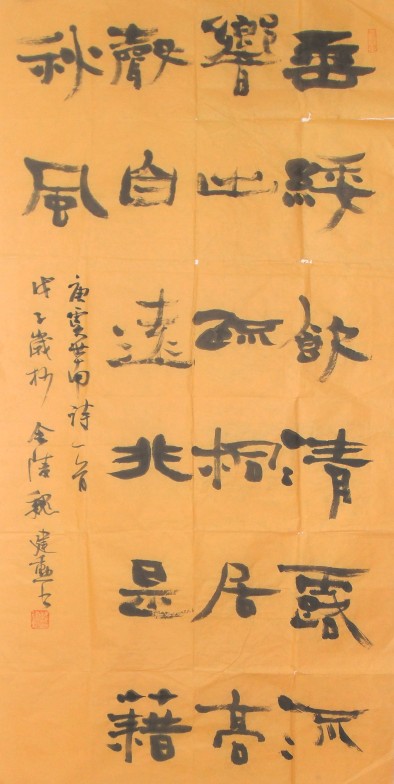 垂緌飲清露流
響出疏桐居高
聲自遠非是藉
秋風
唐虞世南詩一首
戊子歲杪 金陵魏